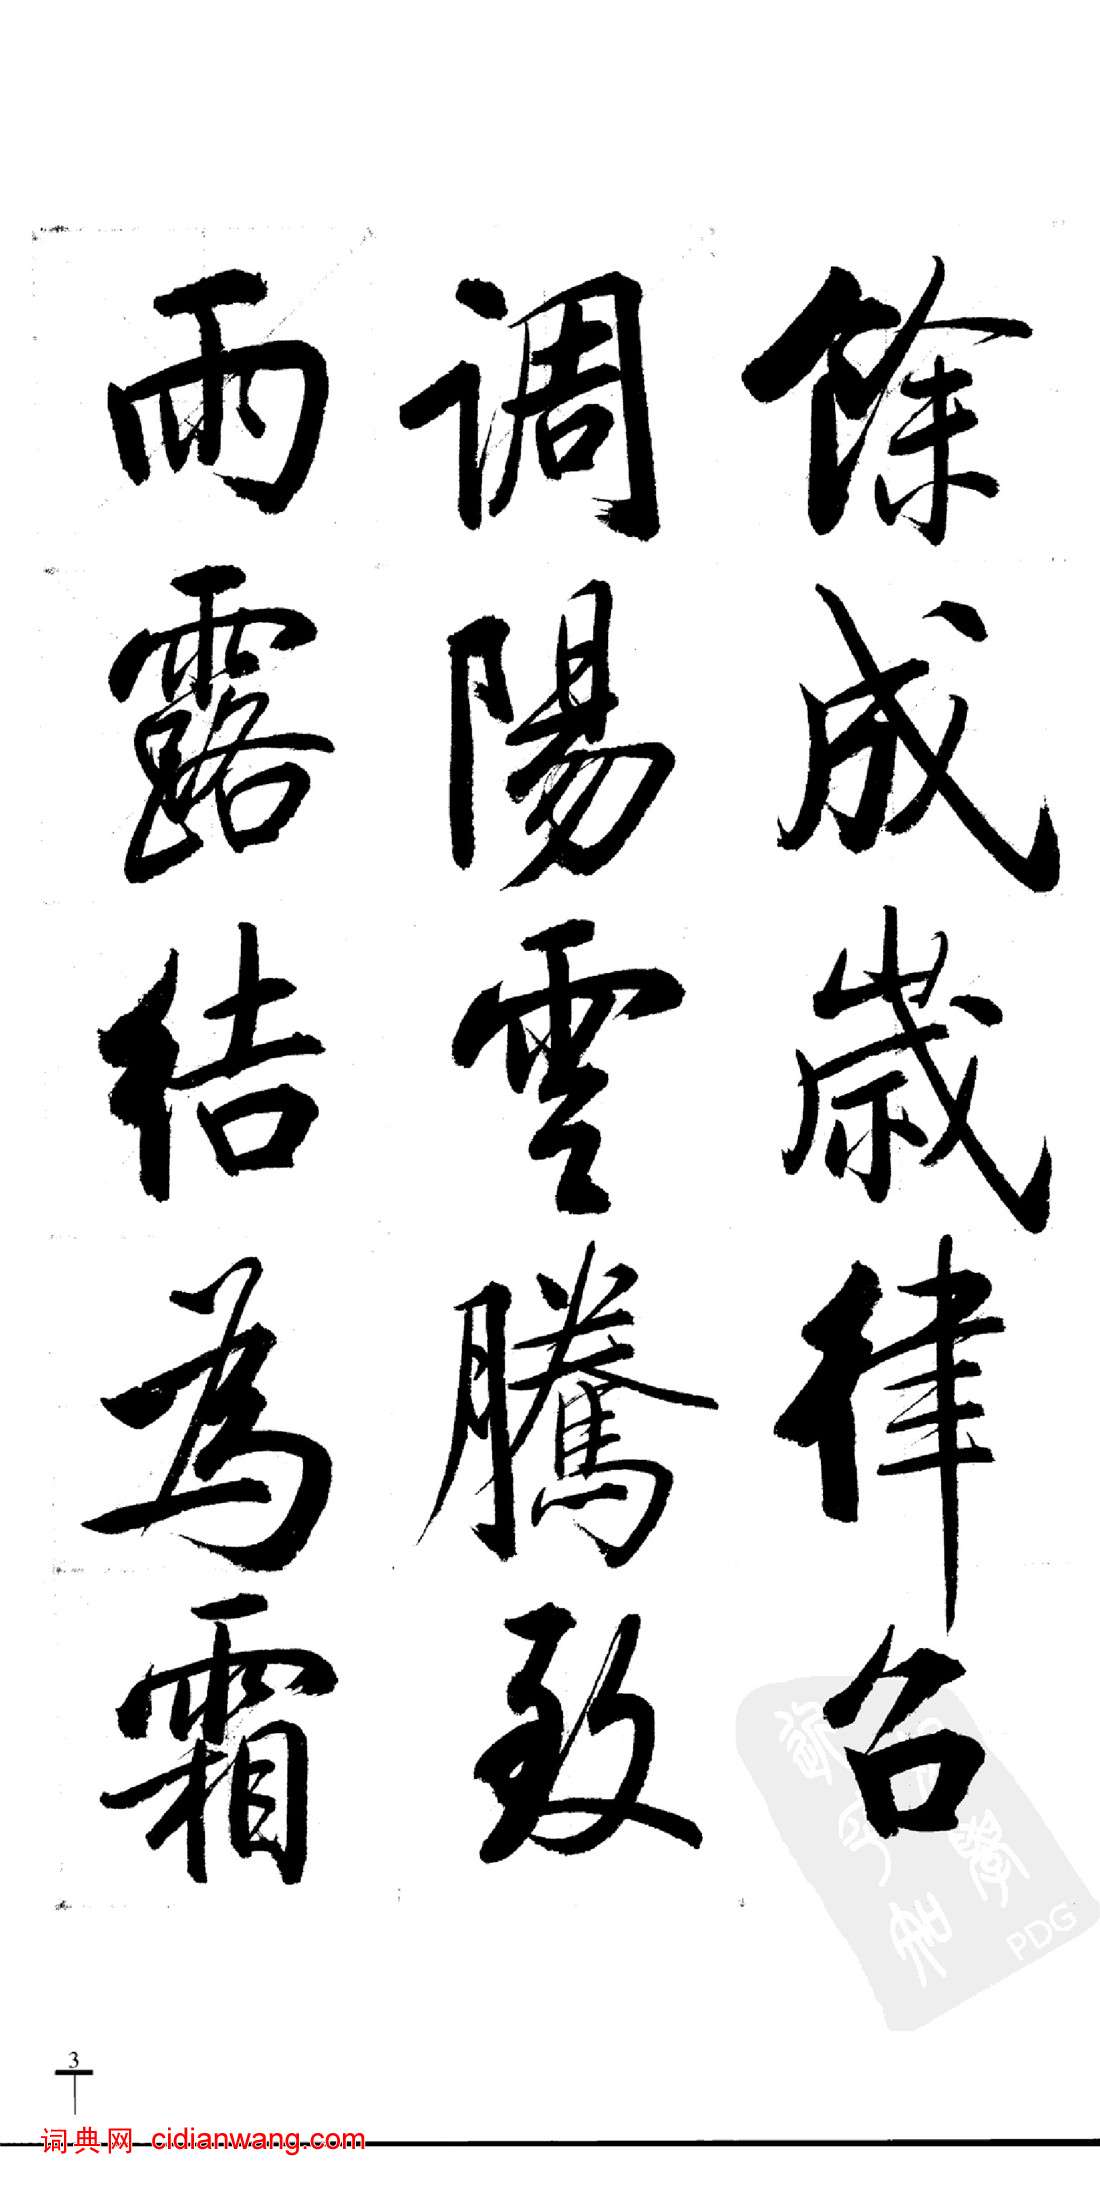 餘成歲律召
調陽雲騰致
雨露結為霜
PDG
3
词典网 cidianwang.com